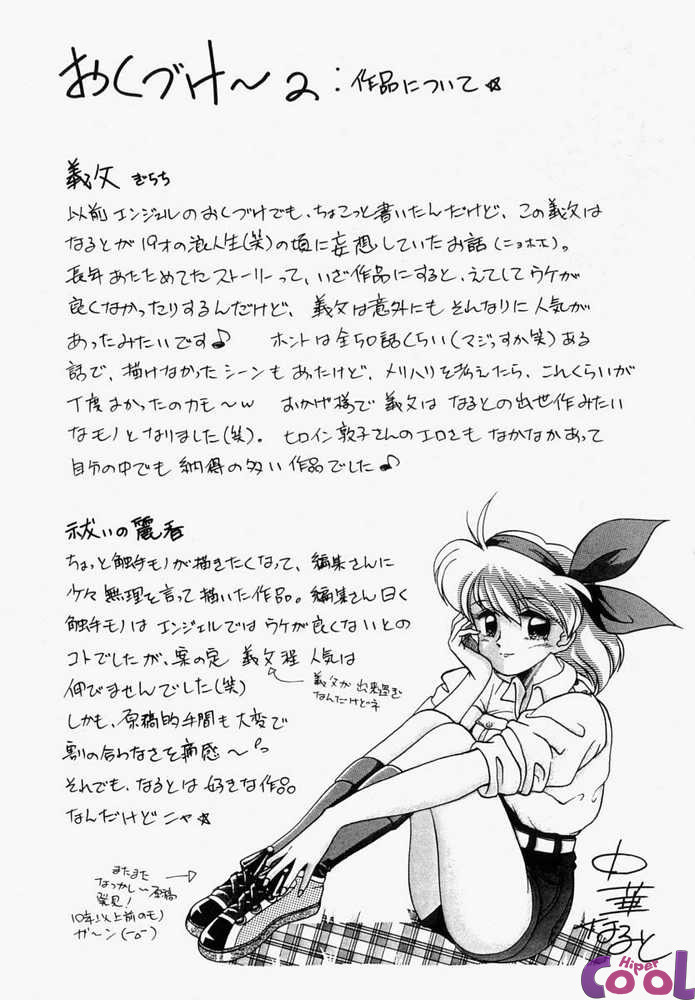 おくづけ～2:作品について☆
義父 ぎちち
以前エンジェルのおくづけでも、ちょこっと書いたんだけど、この義父は
なるとが19才の浪人生(笑)の頃に妄想していたお話(ニョホホエ)。
長年あたためてたストーリーって、いざ作品にすると、えてしてウケが
良くなかったりするんだけど、義父は意外にもそれなりに人気が
あったみたいです♪ ホントは全50話くらい(マジっすか笑)ある
話で、描けなかったシーンもあったけど、メリハリを考えたら、これくらいが
丁度よかったのカモ～w おかげ様で義父はなるとの出世作みたい
なモノとなりました(笑)。ヒロイン敦子さんのエロさもなかなかあって
自分の中でも納得の多い作品でした♪
祓いの麗香
ちょっと触手モノが描きたくなって、編集さんに
少々無理を言って描いた作品。編集さん曰く
触手モノはエンジェルではウケが良くないとの
コトでしたが、案の定 義父程人気は
伸びませんでした(笑)
義父が出来過ぎ
なんだけどネ
しかも、原稿的手間も大変で
割の合わなさを痛感～
それでも、なるとは好きな作品
なんだけどニャ☆
またまた
なつかし～原稿
発見!
10年以上前のモノ
ガ～ン(-o-)
中華
なると
Hiper
CooL